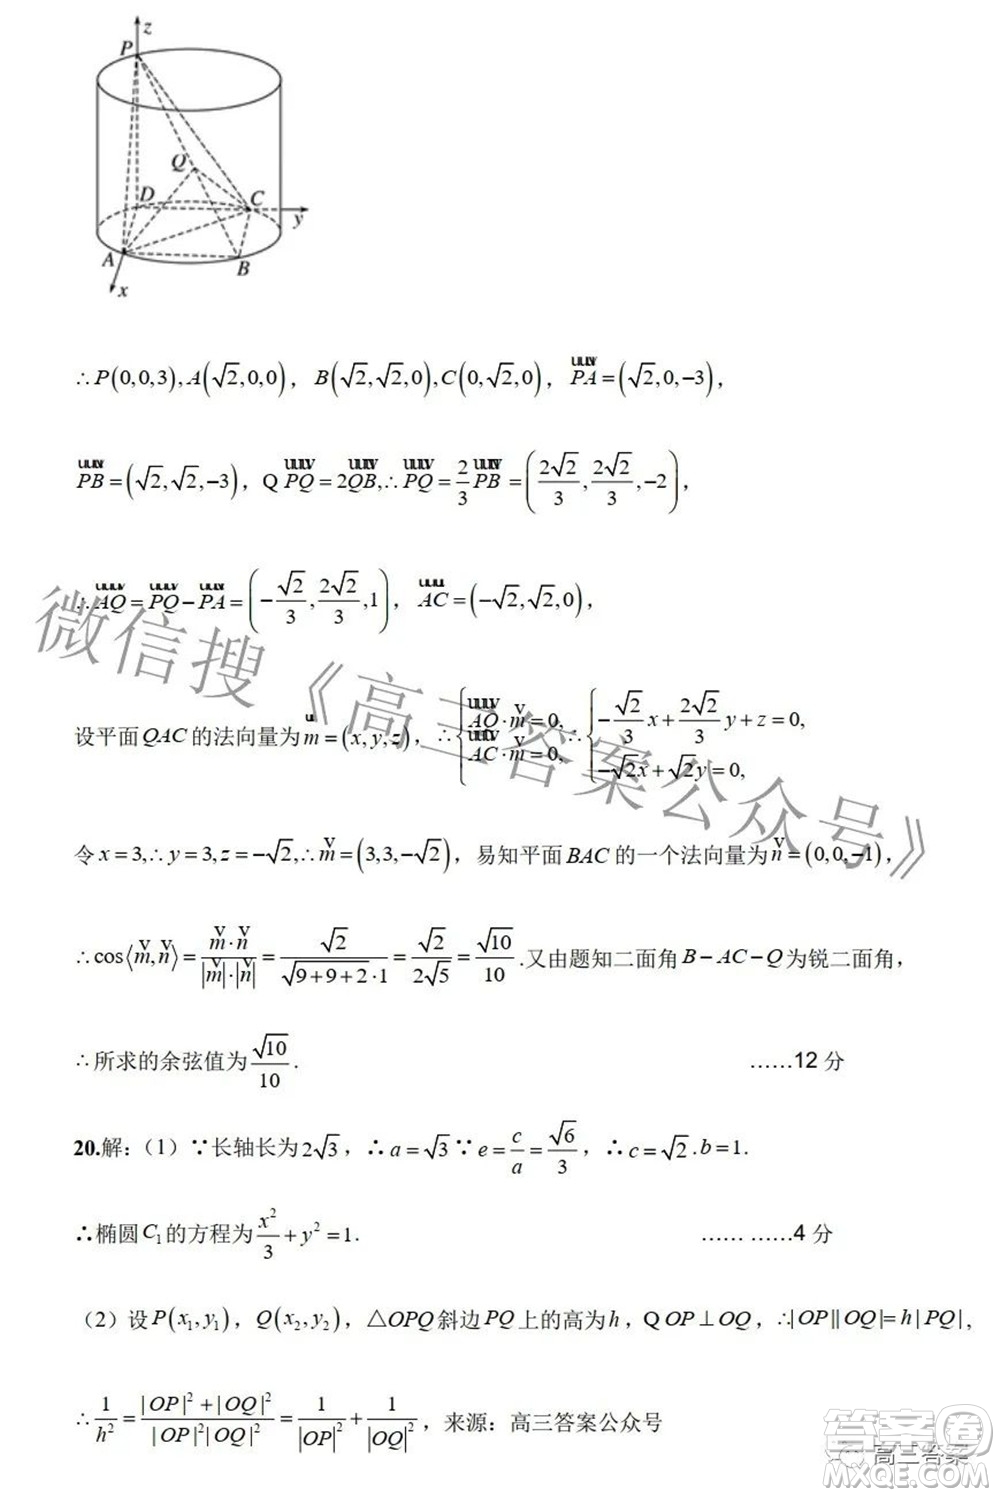 z
P
Q
D
C
y
A
B
x
∴P(0,0,3),A(√2,0,0)，B(√2,√2,0),C(0,√2,0)，PA=(√2,0,−3)，
PB=(√2,√2,−3)，Q PQ=2QB,∴PQ=2/3 PB=(2√2/3,2√2/3,−2)，
∴AQ=PQ−PA=(−√2/3,2√2/3,1)，AC=(−√2,√2,0)，
设平面QAC的法向量为m=(x,y,z)，∴{AQ·m=0, AC·m=0, ∴{−√2/3 x+2√2/3 y+z=0, −√2x+√2y=0,
令x=3,∴y=3,z=−√2,∴m=(3,3,−√2)，易知平面BAC的一个法向量为n=(0,0,−1)，
∴cos⟨m,n⟩=m·n/|m|·|n|=√2/√9+9+2·1=√2/2√5=√10/10.又由题知二面角B−AC−Q为锐二面角，
∴所求的余弦值为√10/10. ……12分
20.解：（1）∵长轴长为2√3，∴a=√3∵e=c/a=√6/3，∴c=√2.b=1.
∴椭圆C₁的方程为x²/3+y²=1. …… ……4分
（2）设P(x₁,y₁)，Q(x₂,y₂)，△OPQ斜边PQ上的高为h，Q OP⊥OQ，∴|OP||OQ|=h|PQ|,
∴1/h²=|OP|²+|OQ|²/|OP|²|OQ|²=1/|OP|²+1/|OQ|²，来源：高三答案公众号
微信搜《高三答案公众号》
高三答案
答案圈
MXQE.COM